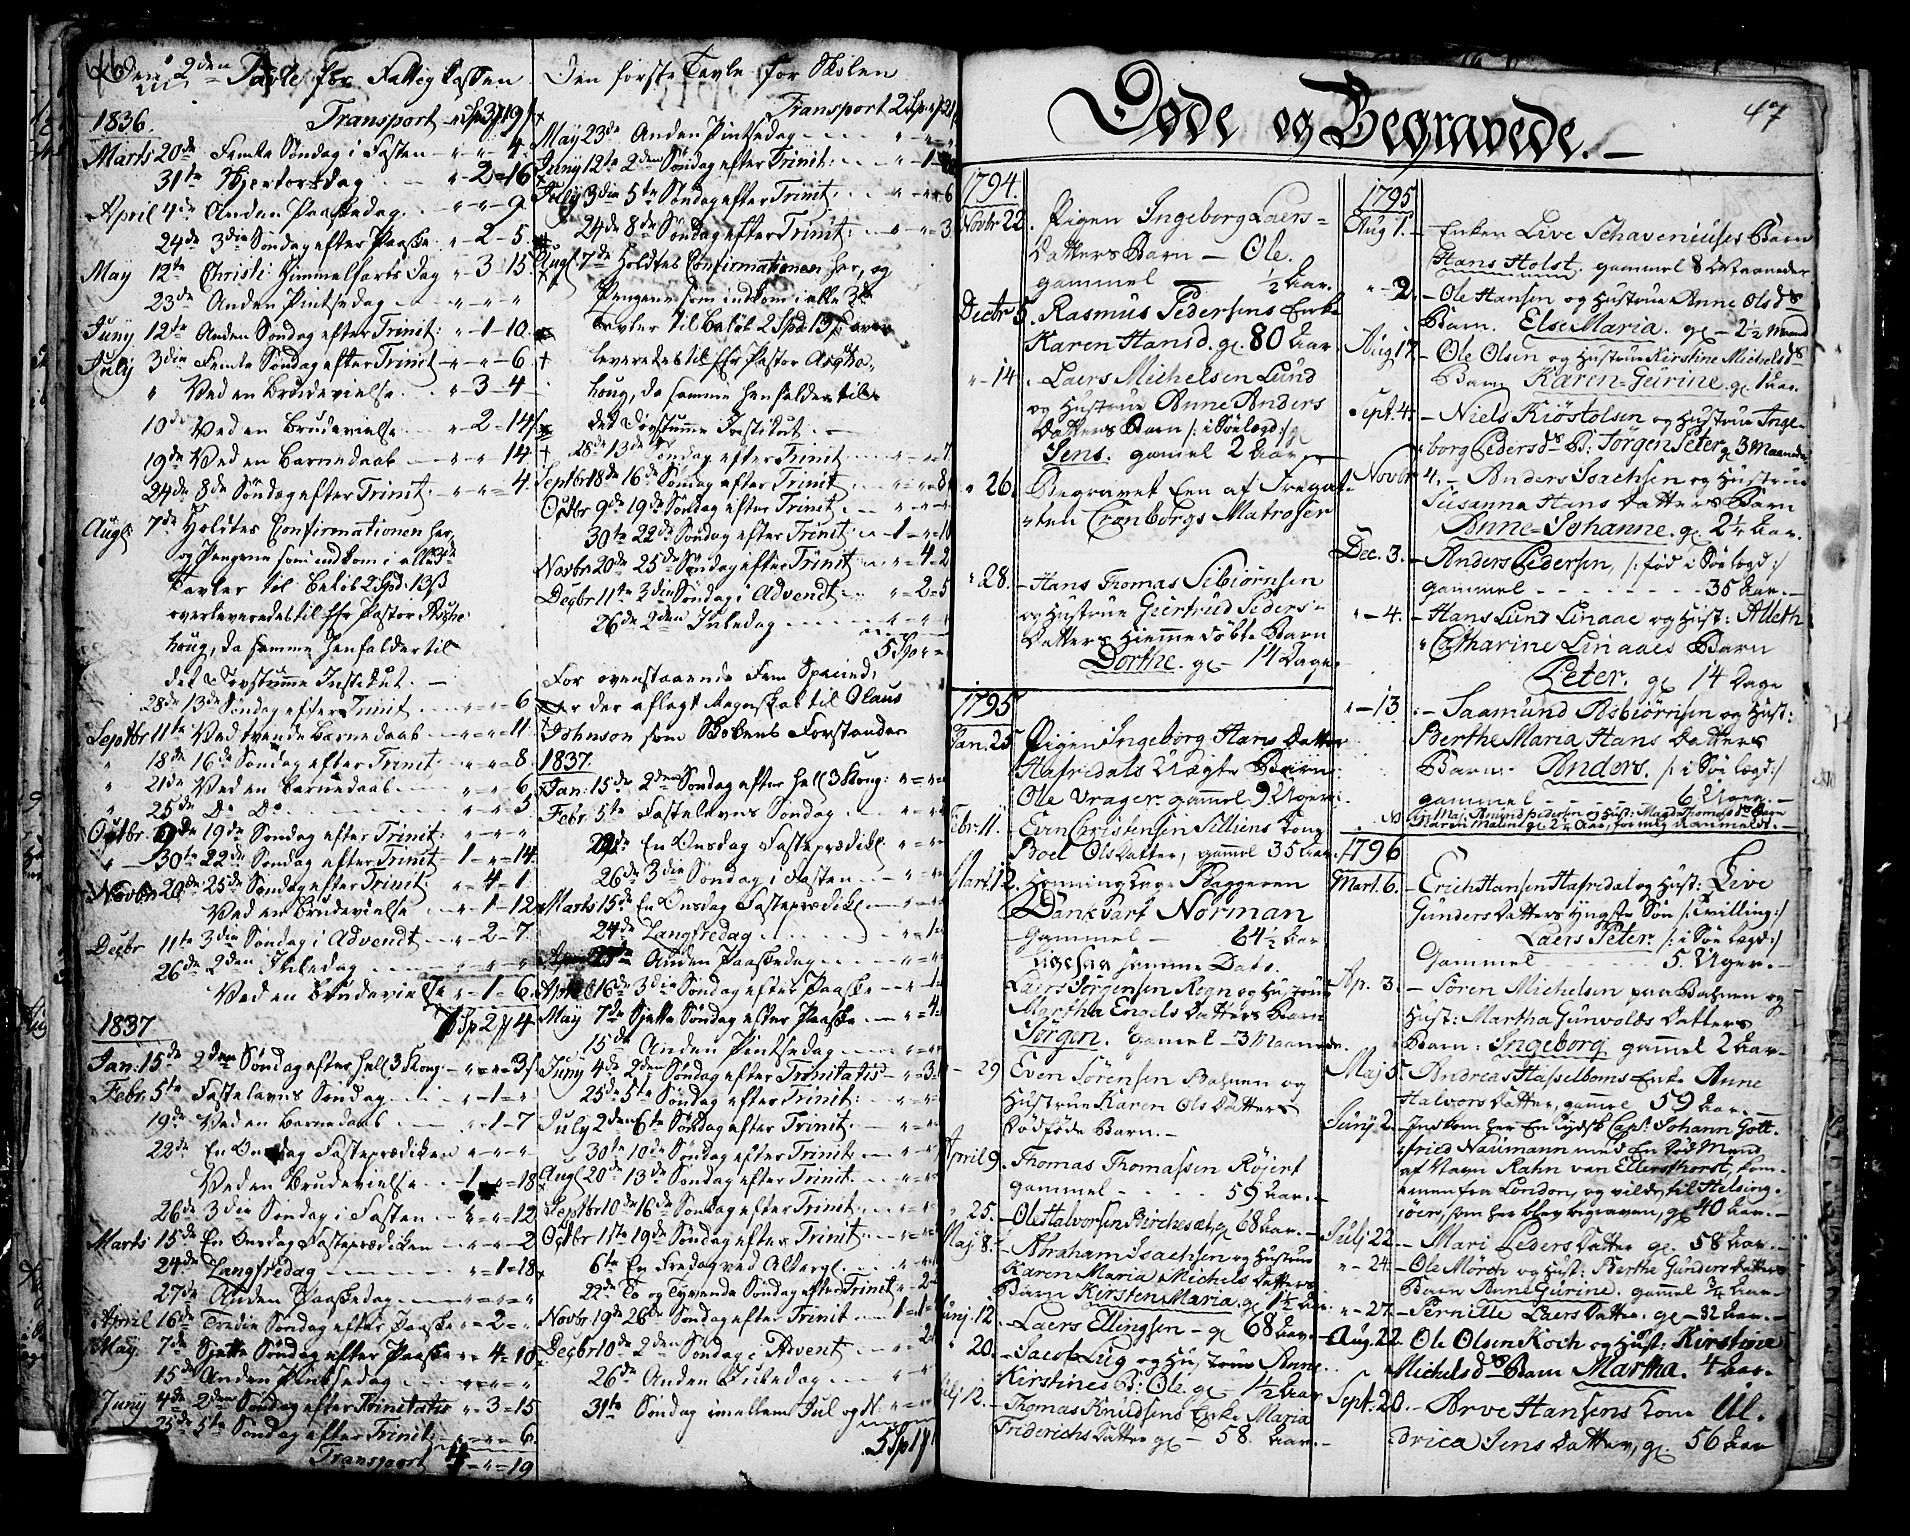 46
Den 2den Tavle for Fattig Cassen
1836. Transport
Marts 20de Femte Søndag i Fasten - " - " - 4.
31te Skjertorsdag - " - 2 - 16
April 4de Anden Paaskedag - " - " - 9.
24de 3die Søndag efter Paaske - " - 2 - 5.
May 12te Christi Himmelfarts Dag " - 3 - 15
23de Anden Pintsedag - " - " - "
Juny 12te Anden Søndag efter Trinit: " - 1 - 10.
July 3die Femte Søndag efter Trinit - " - " - 6.
" Ved en Brudevielse - " - 3 - 4.
10de Ved en Brudevielse - " - 2 - 14
19de Ved en Barnedaab - " - " - 14
24de 8de Søndag efter Trinit: " - " - 4.
Augt 7de Holdtes Confirmationen her,
og Pengene som indkom i alle 3de
Tavler til Beløb 2 Spd. 13 ß
overleveredes til Hr Pastor
houg, da samme henfalder til
det Døvstumme Institut. -
28de 13de Søndag efter Trinit - " = " = 6.
Septbr 11te Ved tvende Barnedaab - " = " = 11.
" 18de 16de Søndag efter Trinit: " = " = 8.
" 21de Ved en Barnedaab - " = " = 6.
" 25de Do Do - " = " = 5
Octbr 9de 19de Søndag efter Trinit: " = " = "
" 30te 22de Søndag efter Trinit 1 = " = 14.
Novbr 20de 25de Søndag efter Trinit: " = 4 = 1.
Ved en Brudevielse - " = 1 = 12
Decbr 11te 3die Søndag i Advendt - " - 2 - 7.
26de 2den Juledag
Ved en Brudevielse " = 1 = 6.
1837
Jan: 15de 2den Søndag efter Hell 3 Kong: - " = " = 3
Febr: 5te Fastelavns Søndag - " = 1 = "
19de Ved en Barnedaab - " = 1 - 7
22de En Onsdag Fasteprædiken " = " = "
Ved en Brudevielse - 1 = " = 18
26de 3die Søndag i Fasten - " = " = 12
Marts 15de En Onsdag Fasteprædiken - " = " = 2
24de Langfredag - " = 1 = 18
27de Anden Paaskedag - " = " = "
April 16de Tredie Søndag efter Paaske " = 2 = "
May 7de Sjette Søndag efter Paaske " = 4 = 10
15de Anden Pintsedag - " = " = "
Juny 4de 2den Søndag efter Trinitatis " = 3 = 15
25de 5te Søndag efter Trinit: " = " = 6.
Transport 4 = " = 19
Den første Tavle for Skolen
Transport
May 23de Anden Pintsedag
Juny 12te 2den Søndag efter Trinit:
July 3die 5te Søndag efter Trinit: " = " = 6
24de 8de Søndag efter Trinit: " = " = 3
Augt 7de Holdtes Confirmationen her, og
Pengene som indkom i alle 3de
Tavler til Beløb 2 Spd. 13 ß over
leveredes til Hr Pastor
houg, da samme henfalder til
det Døvstumme Institut. -
28de 13de Søndag efter Trinit - " = " = 7.
Septbr 18de 16de Søndag efter Trinit " = " = 8
Octbr 9de 19de Søndag efter Trinit.
30te 22de Søndag efter Trinit: - 1 = " = 10
Novbr 20de 25de Søndag efter Trinit " = 4 = 2
Decbr 11te 3die Søndag i Advendt " = 2 = 5
26de 2den Juledag
5 Sp " =
For ovenstaaende Fem Specied:
er der aflagt Regnskab til Olaus
Johnson som Skolens Forstander
1837.
Jan: 15de 2den Søndag efter Hell 3 Kong:
Febr 5te Fastelavns Søndag
22de En Onsdag Fasteprædik
26de 3die Søndag i Fasten
Marts 15de En Onsdag Fasteprædik
24de Langfredag
27de Anden Paaskedag
April 16de 3die Søndag efter Paaske
May 7de Sjette Søndag efter Paaske
15de Anden Pintsedag
Juny 4de 2den Søndag efter Trinitatis
25de 5te Søndag efter Trinit:
July 2den 6te Søndag efter Trinit:
30te 10de Søndag efter Trinit:
Augt 20de 13de Søndag efter Trinit:
Septbr 10de 16de Søndag efter Trinit:
Octbr 1te 19de Søndag efter Trinit:
6te En Fredag ved Alterg:
22de To og Tyvende Søndag efter Trinit
Novbr 19de 26de Søndag efter Trinit
Decbr 10de 2den Søndag i Advent
26de Anden Juledag
31te Søndag imellem Jul og N:
47
Døde og Begravede. -
1794.
Novbr 22. Pigen Ingeborg Laers=
Datters Barn - Ole.
gammel - 1/2 Aar.
Decbr 5. Rasmus Pedersens Enke
Karen Hansd. gl. 80 Aar.
" - 14. Laers Michelsen Lund
og Hustrue Anne Anders
Datters Barn /: i Søelægd :/
Jens. gamel 2 Aar. -
" 26. Begravet Een af Fregat-
ten Cronborgs Matroser
" 28. - Hans Thomas Sibiørnsen
og Hustrue Giertrud Peders-
Datters Hiemmedøbte Barn
Dorthe. gl - 14 Dage.
1795
Jan. 25 Pigen Ingeborg Hans Datter
Hafredals Uægte Barn
Ole Vrager gammel 9 Uger.
Febr. 11. Even Christensen Kone
Boel Ols Datter, gammel 35 Aar.
Mart. 12. Henning Aage Baggeren
Dankvart Norman
gammel - 64 1/2 Aar.
Ligesaa samme Dato.
Laers Jørgensen Røgn og Hustrue
Martha Engels Datters Barn
Jørgen. Gamel - 3 Maaneder.
- 29 Even Sørensen Baþnen og
Hustrue Karen Ols Datters
Dødføde Barn. -
April 9. Thomas Thomassen Røjert
gammel - 59 Aar. -
" 25. - Ole Halvorsen Birchesæt gl 68 Aar. -
Maj 8. - Abraham Isachsen og Hustrue
Karen Maria Michels Datters
Barn Kirsten Maria. gl 1 1/2 Aar
Junj. 12. - Laers Ellingsen - gl 68 Aar. -
" 20. - Jacob Lüg og Hustrue Anne
Kirstines B: Ole. gl 1 1/2 Aar
Julj 12. - Thomas Knudsens Enke Maria
Friderichs Datter gl - 58. Aar. -
1795
Aug. 1. - Enken Live Schaveniuses Barn
Hans Holst. gammel 8 Maaneder
" - 2. - Ole Hansen og Hustrue Anne Olsds
Barn. Else Maria. gl - 2 1/2 Maaned
Aug 17. - Ole Olsen og Hustrue Kirstine Michelsds
Barn Karen-Gurine. gl 1 Aar.
Sept. 4. - Niels Kiøstolsen og Hustrue Inge-
borg Pedersds B: Jørgen Peter gl 3 Maaneder
Novbr 4. - Anders Isachsen og Hustrue
Susanna Hans Datters Barn
Anne-Johanne. gl 2 1/4 Aar.
Dec. 3. - Anders Pedersen, /: fød i Søelægd :/
gammel - - - 35 Aar. -
" - 4. - Hans Lund Linaae og Hust: Alleth
Catharine Linaaes Barn
Peter. gl 14 Dage
" - 13. - Saamund Asbiørnsen og Hust:
Berthe Maria Hans Datters
Barn. Anders. /: i Søelægd :/
gammel - 6 Uger. -
Amund Pedersen og Hust: Magd: Thomasds Barn
Karen Malene gl 2 1/4 Aar,
1796
Mart. 6. - Erich Hansen Hafredal og Hust: Live
Gunders Datters Yngste Søn /: Tvilling :/
Laers Peter. /: i Søelægd :/
Gammel - 5. Uger. -
Ap. 3. - Søren Michelsen paa Baþnen og
Hust: Martha Gunvolds Datters
Barn: Ingeborg gammel 2 Aar -
Maj 5. - Andreas Hasselboms Enke Anne
Halvors Datter, gammel 59 Aar. -
Junj 2. - Indkom her En tydsk Capt: Johann Gott-
fried Naumann med En Død Mand
af Navn Rahn van Ellersthorst, kom-
men fra London, og vilde til Helsing-
øer, som her blev begraven, gl 40 Aar. -
Julj 22. - Mari Peders Datter gl 58 Aar. -
" - 24. - Ole Mørch og Hust: Berthe Gunders Datters
Barn Anne Gurine. gammel 3/4 Aar -
" - 27. - Pernille Laers Datter. gl - 32 Aar -
- Aug. 22. Ole Olsen Koch og Hust: Kirstine
Michelsds Barn Martha. 4 Aar.
Sept. 20. - Arve Hansens Kone Ul-
drica Jens Datter, gl. 56 Aar